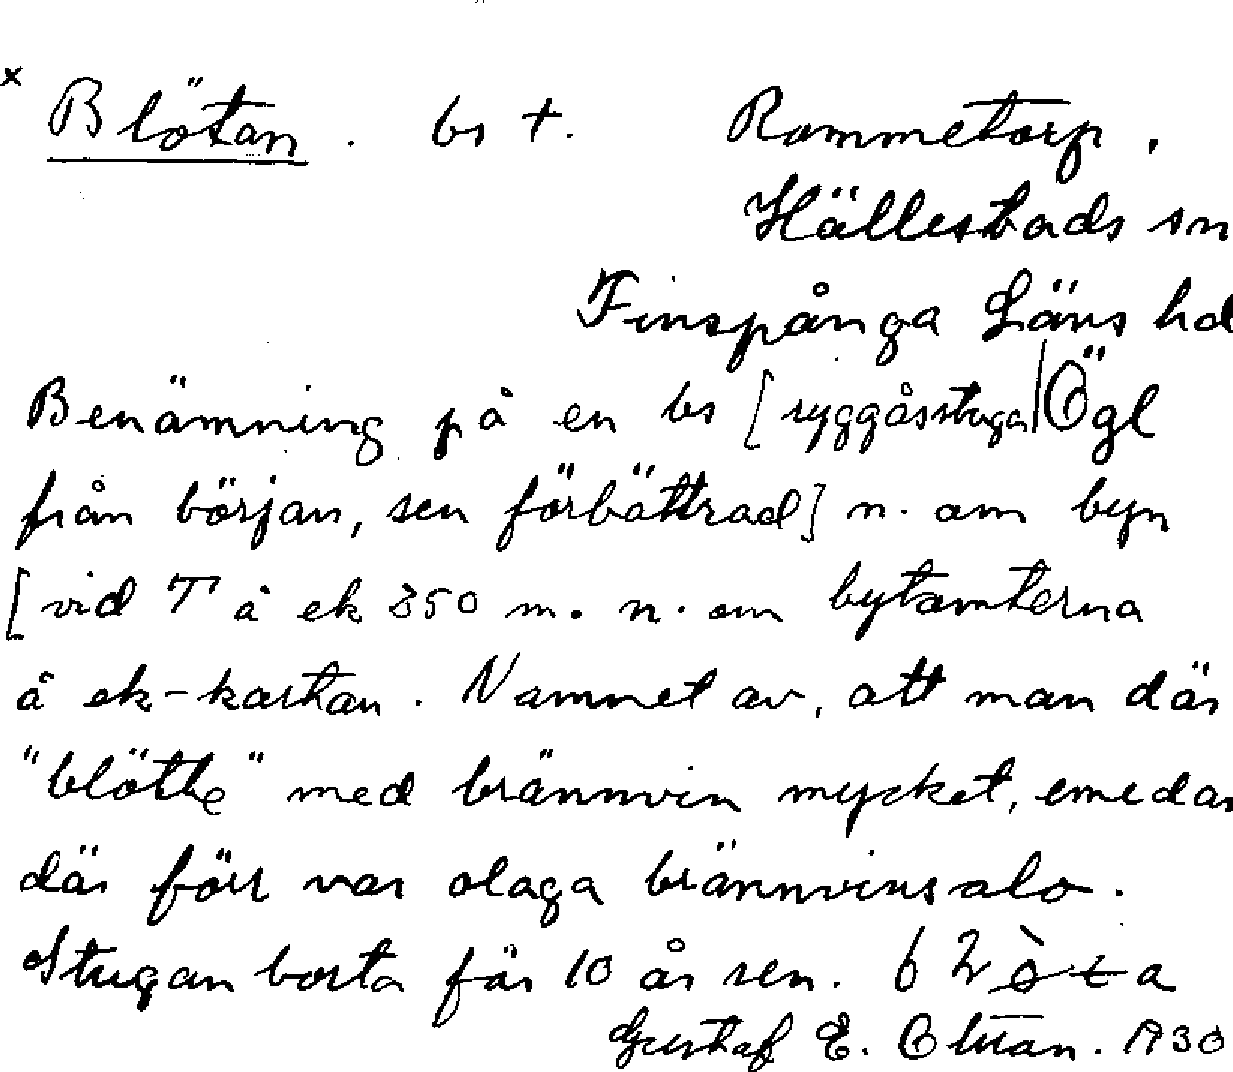 x Blötan. bs +. Rommetorp.
Hällestads sn
Finspånga Läns hd
Benämning på en bs [ryggåsstuga| Ögl
från början, sen förbättrad] n. om byn
[vid T å ek 350 m. n. om bytomterna
å ek-kartan. Namnet av, att man där
"blötte" med brännvin mycket, emedan
där förr var olaga brännvinsalo.
Stugan borta för 10 år sen.
Gustaf E. 1930